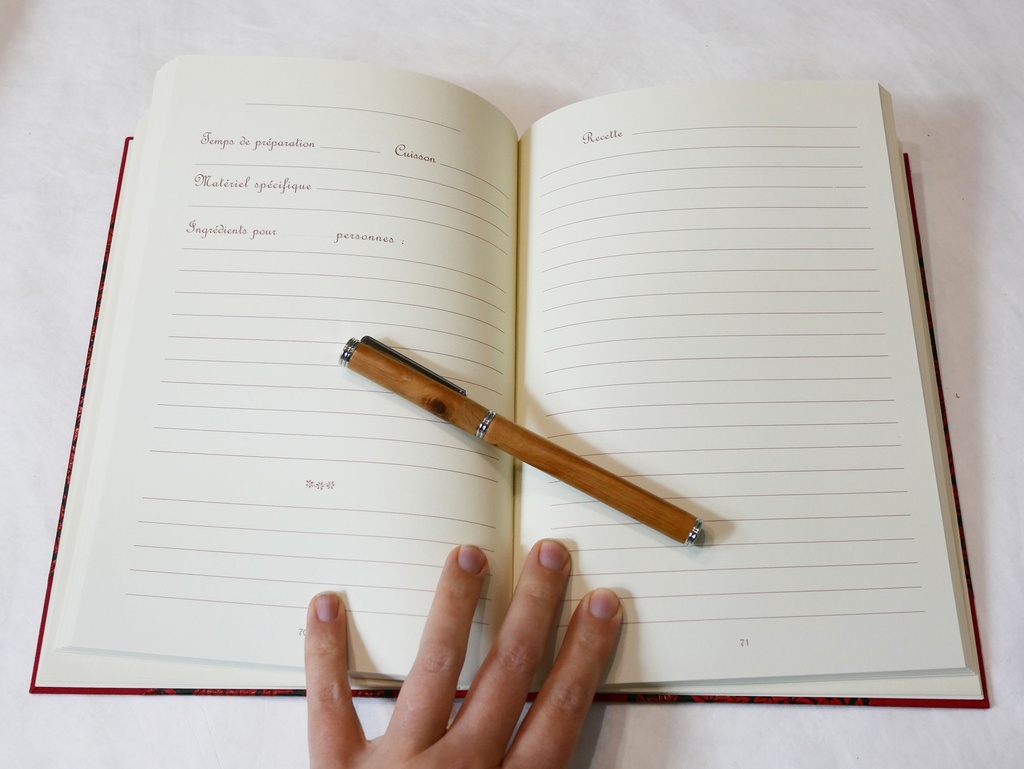 Temps de préparation Cuisson
Matériel spécifique
Ingrédients pour personnes :
70
Recette
71